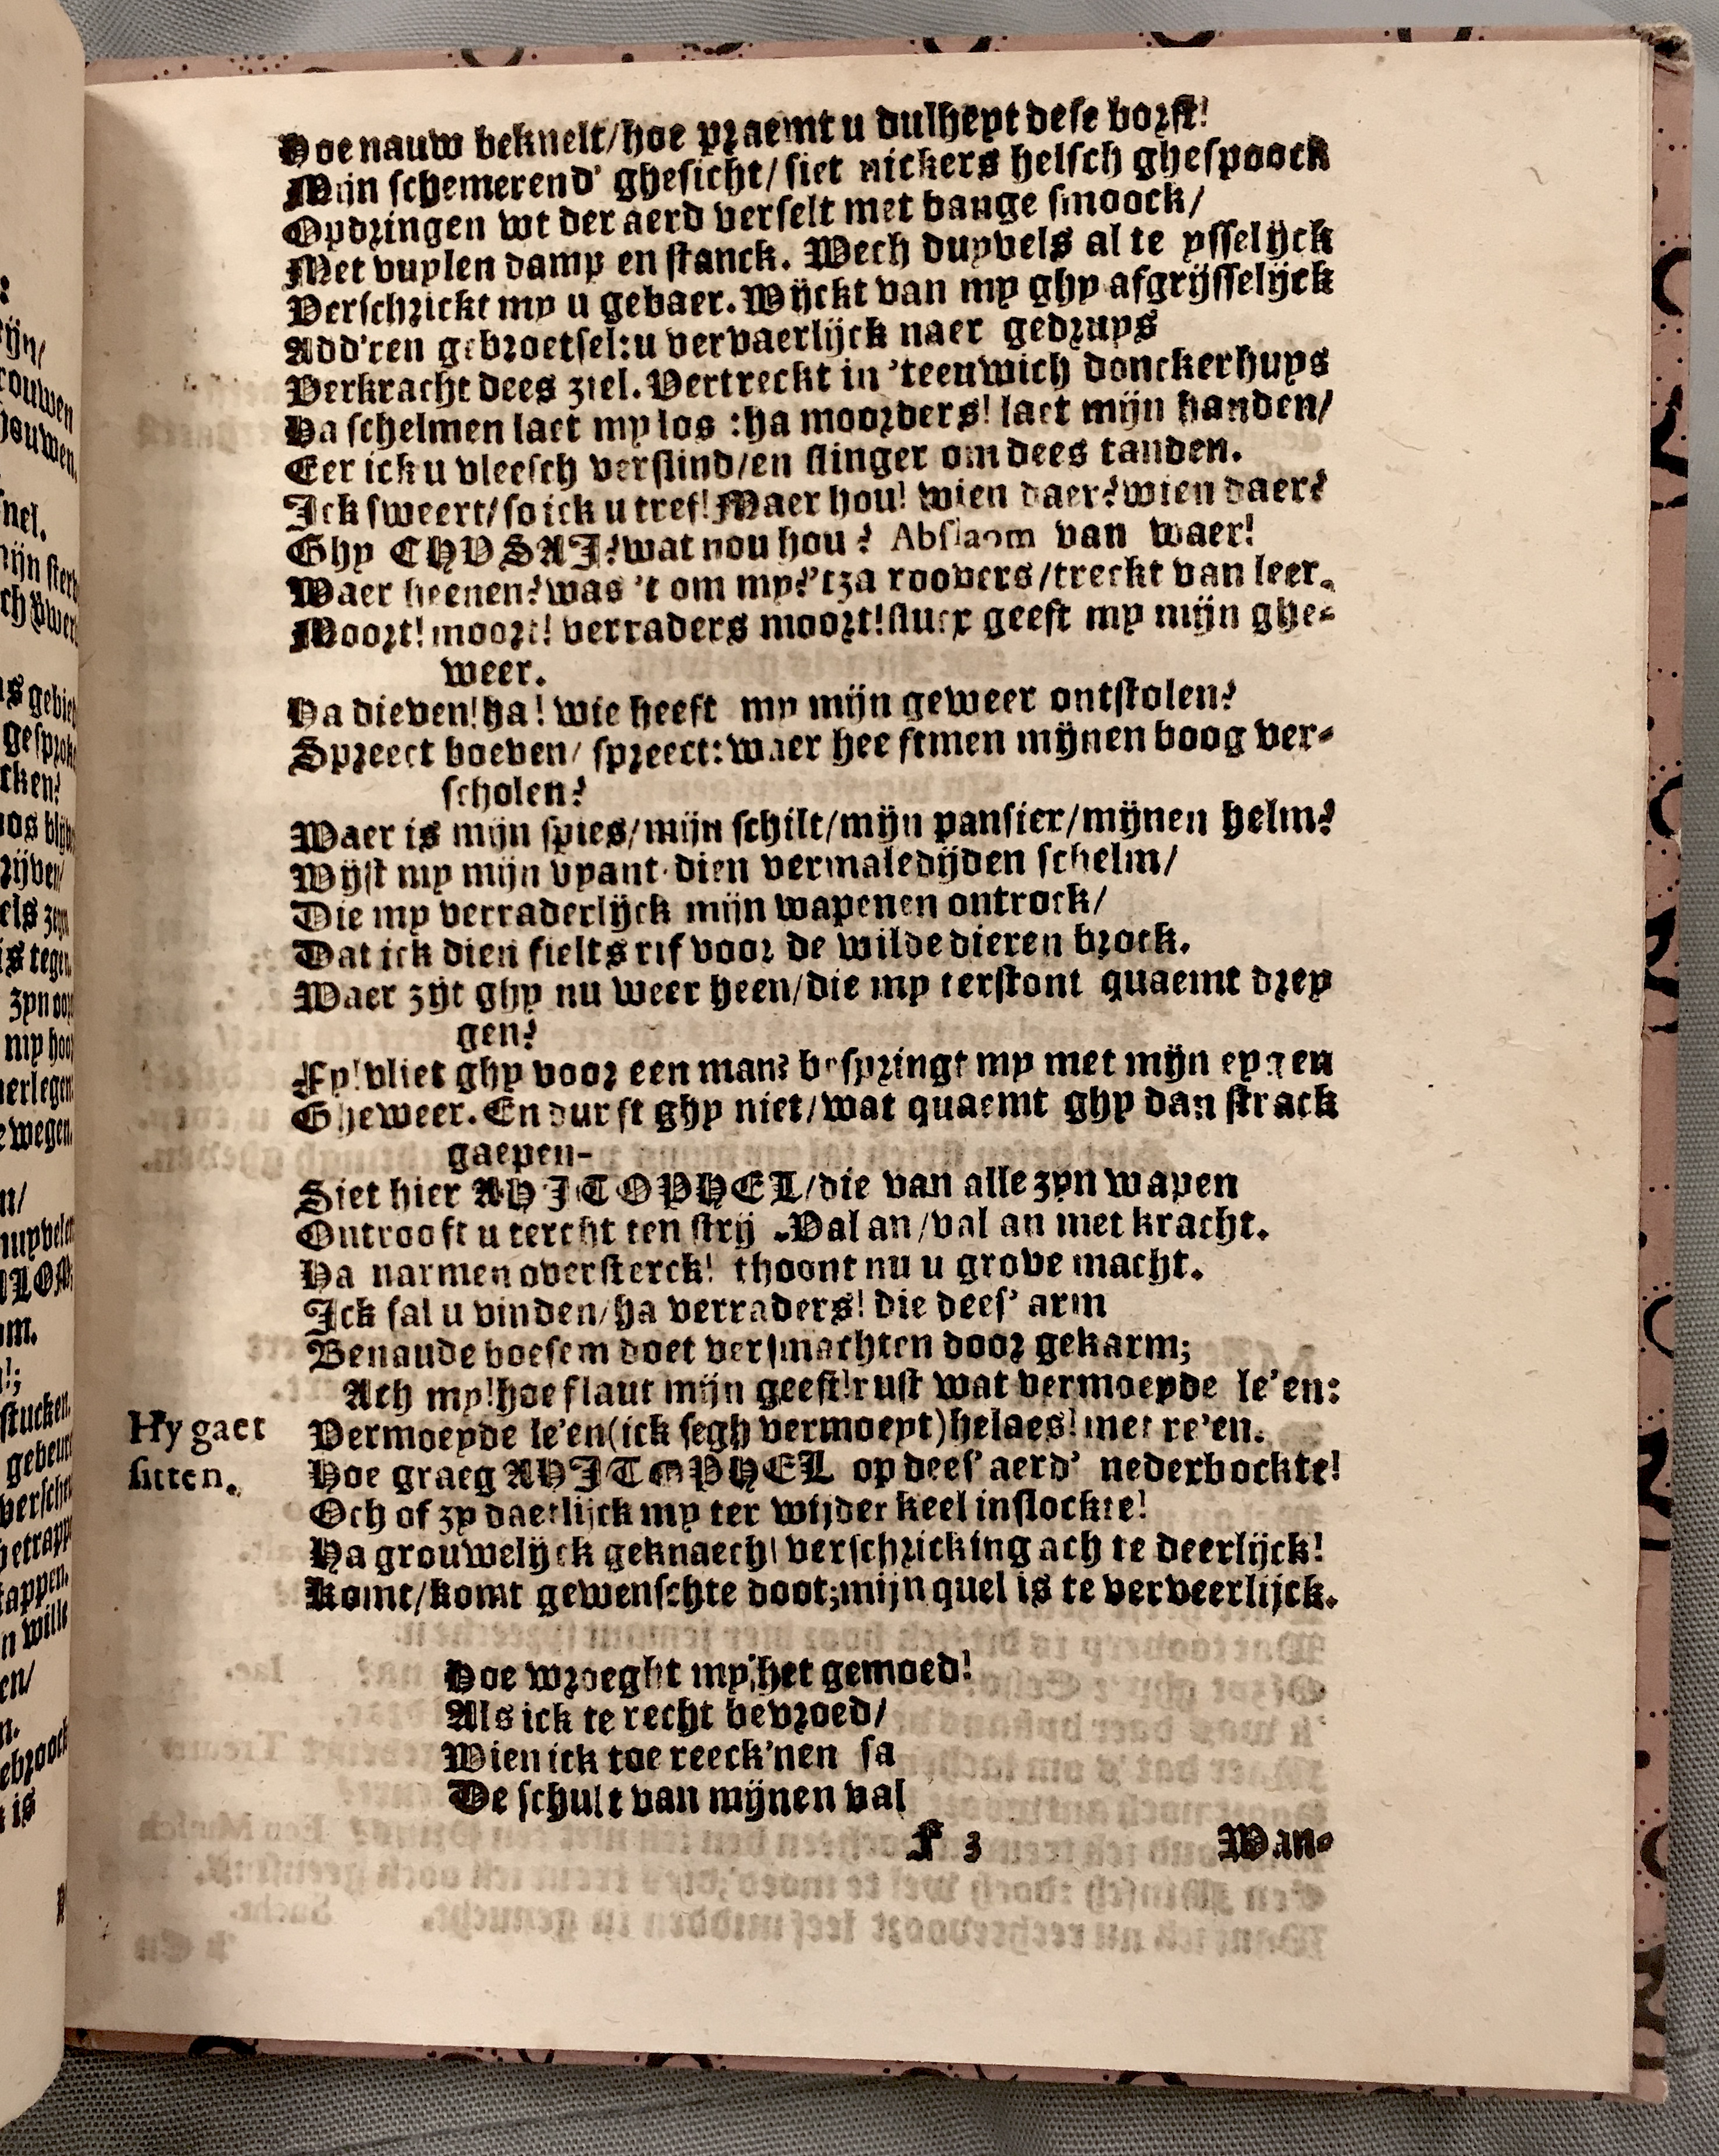 Hoe nauw beknelt/hoe praemt u dulheyt dese borst!
Mijn schemerend' ghesicht/siet nickers helsch ghespoock
Opdringen wt der aerd verselt met bange smoock/
Met vuylen damp en stanck. Wech duyvels al te ysselijck
Verschrickt my u gebaer. Wijckt van my ghy afgrijsselijck
Add'ren gebroetsel: u vervaerlijck naer gedruys
Verkracht dees ziel. Vertreckt in 't eeuwich donckerhuys
Ha schelmen laet my los : ha moorders! laet mijn handen/
Eer ick u vleesch verslind/en slinger om dees tanden.
Ick sweert/so ick u tref! Maer hou! wien daer? wien daer?
Ghy CHUSAI? wat nou hou? Abslaom van waer!
Waer heenen? was 't om my? 'tza roovers/treckt van leer.
Moort! moort! verraders moort! flucx geeft my mijn ghe-
weer.
Ha dieven! ha! wie heeft my mijn geweer ontstolen?
Spreect boeven/ spreect: waer heeftmen mijnen boog ver-
scholen?
Waer is mijn spies/mijn schilt/mijn pansier/mijnen helm?
Wijst my mijn vyant dien vermaledijden schelm/
Die my verraderlijck mijn wapenen ontrock/
Dat ick dien fielts rif voor de wilde dieren brock.
Waer zijt ghy nu weer heen/die my terstont quaemt drey
gen?
Fy! vliet ghy voor een man? bespringt my met mijn eygen
Gheweer. En durft ghy niet/wat quaemt ghy dan strack
gaepen-
Siet hier AHITOPHEL/die van alle zyn wapen
Ontrooft u tercht ten strij . Val an/val an met kracht.
Ha narmen oversterck! thoont nu u grove macht.
Ick sal u vinden/ha verraders! die dees' arm
Benaude boesem doet versmachten door gekarm;
Ach my! hoe flaut mijn geest! rust wat vermoeyde le'en:
Hy gaet
sitten.
Vermoeyde le'en (ick segh vermoeyt) helaes! met re'en.
Hoe graeg AHITOPHEL op dees' aerd' nederbockte!
Och of zy daetlijck my ter wijder keel inslockte!
Ha grouwelijck geknaech! verschricking ach te deerlijck!
Komt/komt gewenschte doot; mijn quel is te verveerlijck.
Hoe wroeght my het gemoed!
Als ick te recht bevroed/
Wien ick toe reeck'nen sa
De schult van mijnen val
F 3
Wan-